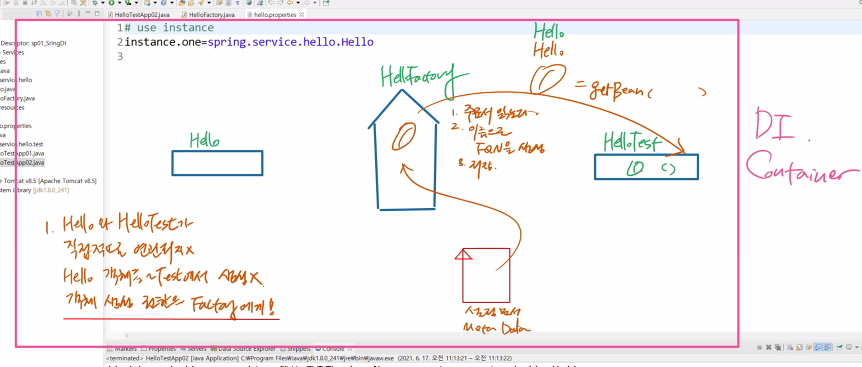 HelloTestApp02.java
HelloFactory.java
hello.properties
Descriptor: sp01_SringDI
Services
java
service.hello
o.java
oFactory.java
resources
o.properties
service.hello.test
oTestApp01.java
oTestApp02.java
e Tomcat v8.5 [Apache Tomcat v8.5]
stem Library [jdk1.8.0_241]
1 # use instance
2 instance.one=spring.service.hello.Hello
3
Hello
Hello
= getBean( )
HelloFactory
1. 주문서 읽는다
2. 이름으로
FQN을 생성
3. 저장
Hello
HelloTest
( )
DI.
Container
1. Hello와 HelloTest가
직접적으로 연관되지 X
Hello 객체는 ~Test에서 생성 X
객체 생성 권한은 Factory에게!
설정문서
Meta Data
Markers
Properties
Servers
Data Source Explorer
Snippets
Console
<terminated> HelloTestApp02 [Java Application] C:\Program Files\Java\jdk1.8.0_241\jre\bin\javaw.exe (2021. 6. 17. 오전 11:13:21 – 오전 11:13:22)